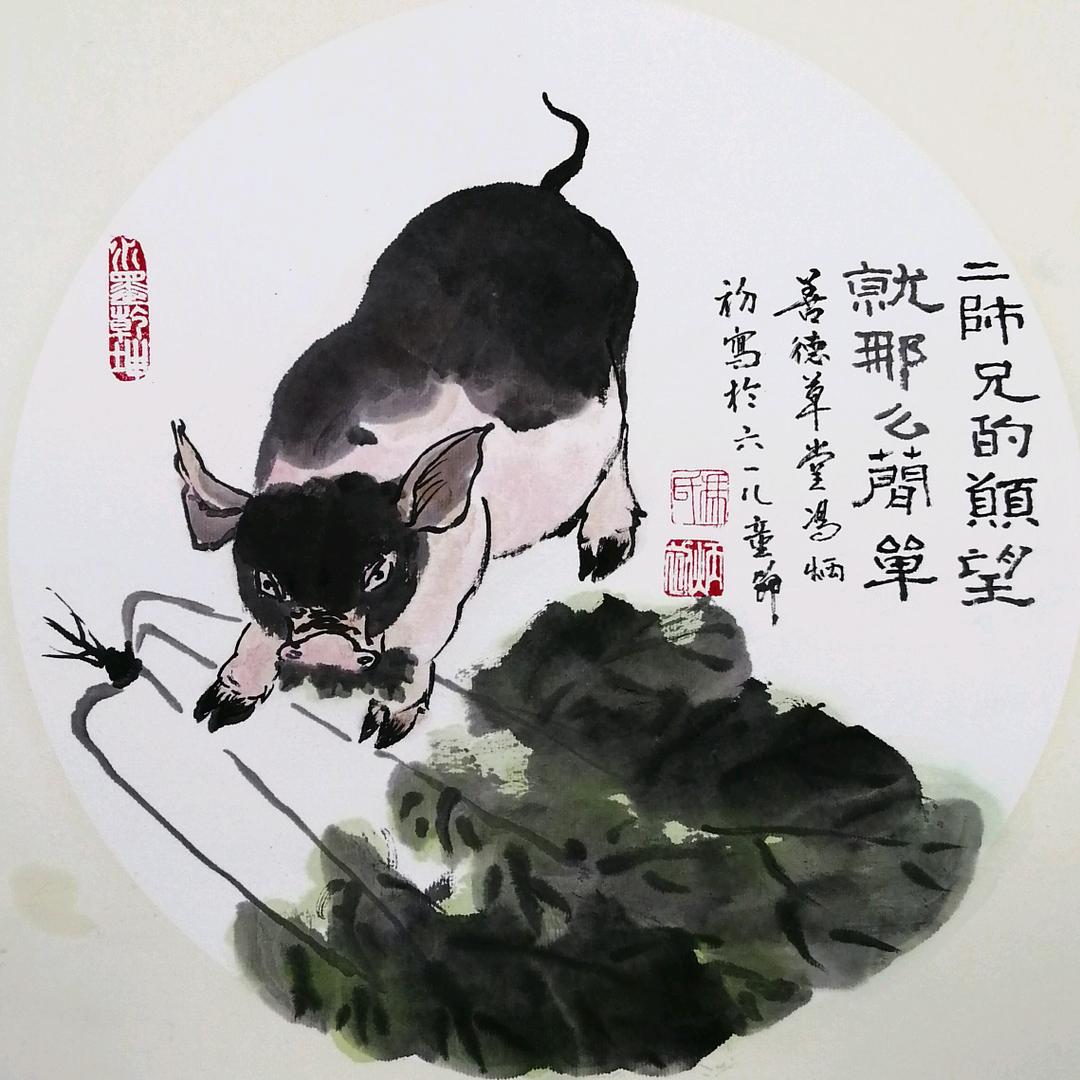 二師兄的顛望
就那么蕳單
善德草堂馮炳
初寫於六一儿童節
水墨乾坤